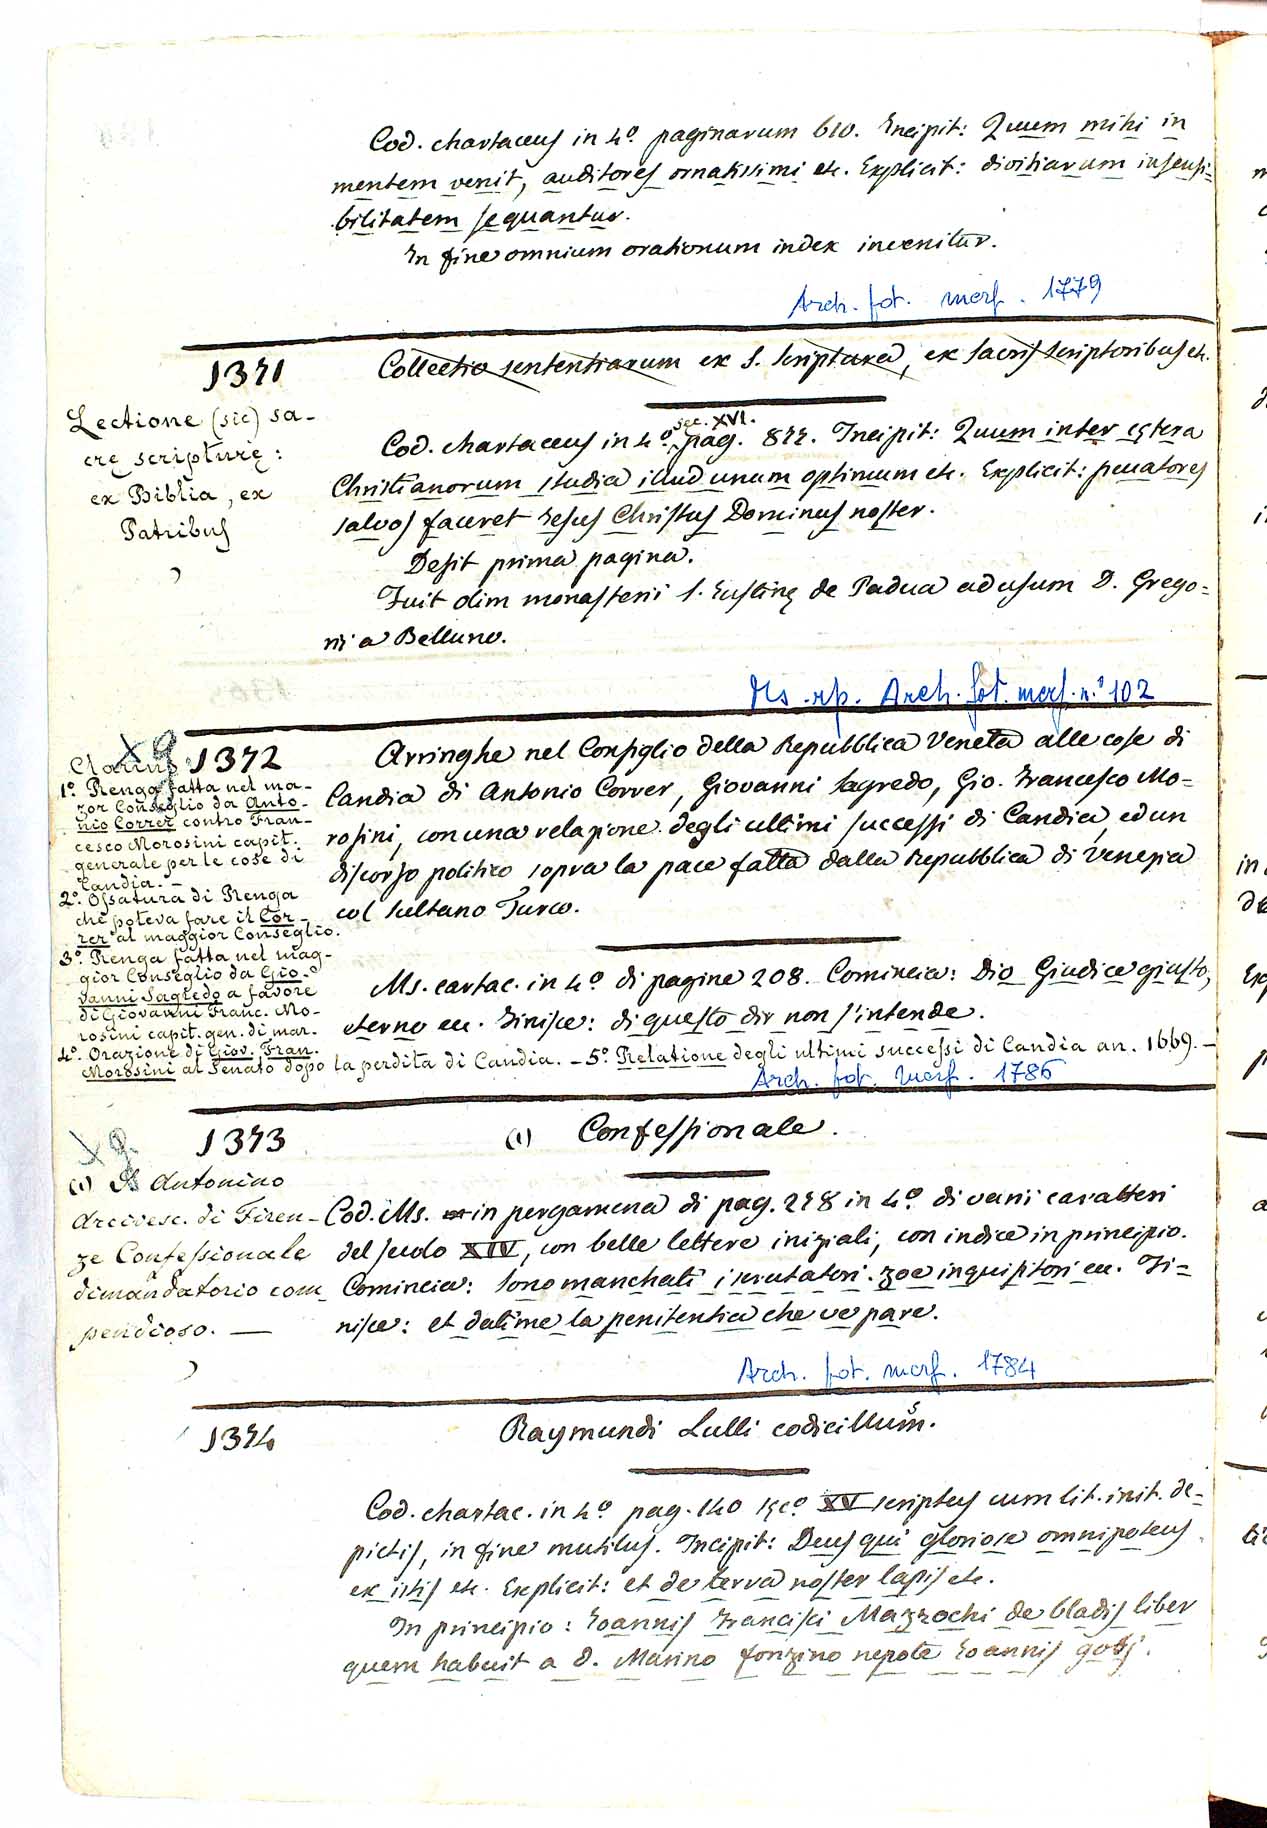 Cod. chartaceus in 4.º paginarum 610. Incipit: Quum mihi in
mentem venit, auditores ornatissimi etc. Explicit: divitiarum insensi=
bilitatem sequantur.
In fine omnium orationum index invenitur.
Arch. fot. merf. 1779
1371
Collectio sententiarum ex S. Scriptura, ex sacris scriptoribus etc.
Lectione (sic) sa-
crę scripturę:
ex Biblia, ex
Patribus
sec. XVI.
Cod. chartaceus in 4.º pag. 877. Incipit: Quum inter cętera
Christianorum studia illud unum optimum etc. Explicit: peccatores
salvos faceret Jesus Christus Dominus noster.
Desit prima pagina.
Fuit olim monasterii S. Justinę de Padua ad usum D. Grego=
rii a Belluno.
Ms. rp. Arch. fot. merf. n.º 102
1372
Arringhe nel Consiglio della Repubblica Veneta alle cose di
Candia di Antonio Correr, Giovanni Sagredo, Gio. Francesco Mo=
rosini, con una relazione degli ultimi successi di Candia, ed un
discorso politico sopra la pace fatta dalla Repubblica di Venezia
col Sultano Turco.
1.º Renga fatta nel ma-
gor Conseglio da Anto-
nio Correr contro Fran-
cesco Morosini capit.
generale per le cose di
Candia. -
2.º Ossatura di Renga
che poteva fare il Cor-
rer al maggior Conseglio.
3.º Renga fatta nel mag-
gior Conseglio da Gio-
vanni Sagredo a favore
di Giovanni Franc. Mo-
rosini capit. gen. di mar.
4.º Orazione di Giov. Fran.
Morosini al Senato dopo la perdita di Candia. - 5.º Relatione degli ultimi successi di Candia an. 1669. -
Ms. cartac. in 4.º di pagine 208. Comincia: Dio Giudice giusto,
eterno ec. Finisce: di questo dir non s'intende.
Arch. fot. merf. 1786
1373
(1) Confessionale.
(1) S. Antonino
Arcivesc. di Firen-
ze Confessionale
dimandatorio com
pendioso. —
Cod. Ms. in pergamena di pag. 278 in 4.º di varii caratteri
del secolo XIV, con belle lettere iniziali, con indice in principio.
Comincia: Sono manchati i scrutatori. zoe inquisitori ec. Fi=
nisce: et datime la penitentia che ve pare.
Arch. fot. merf. 1784
1374
Raymundi Lulli codicillum.
Cod. chartac. in 4.º pag. 140 sęc.º XV scriptus cum lit. init. de=
pictis, in fine mutilus. Incipit: Deus qui gloriose omnipotens
ex istis etc. Explicit: et de terra noster lapis etc.
In principio: Joannis Francisci Mazzochi de bladis liber
quem habuit a d. Marino fonzino nepote Joannis